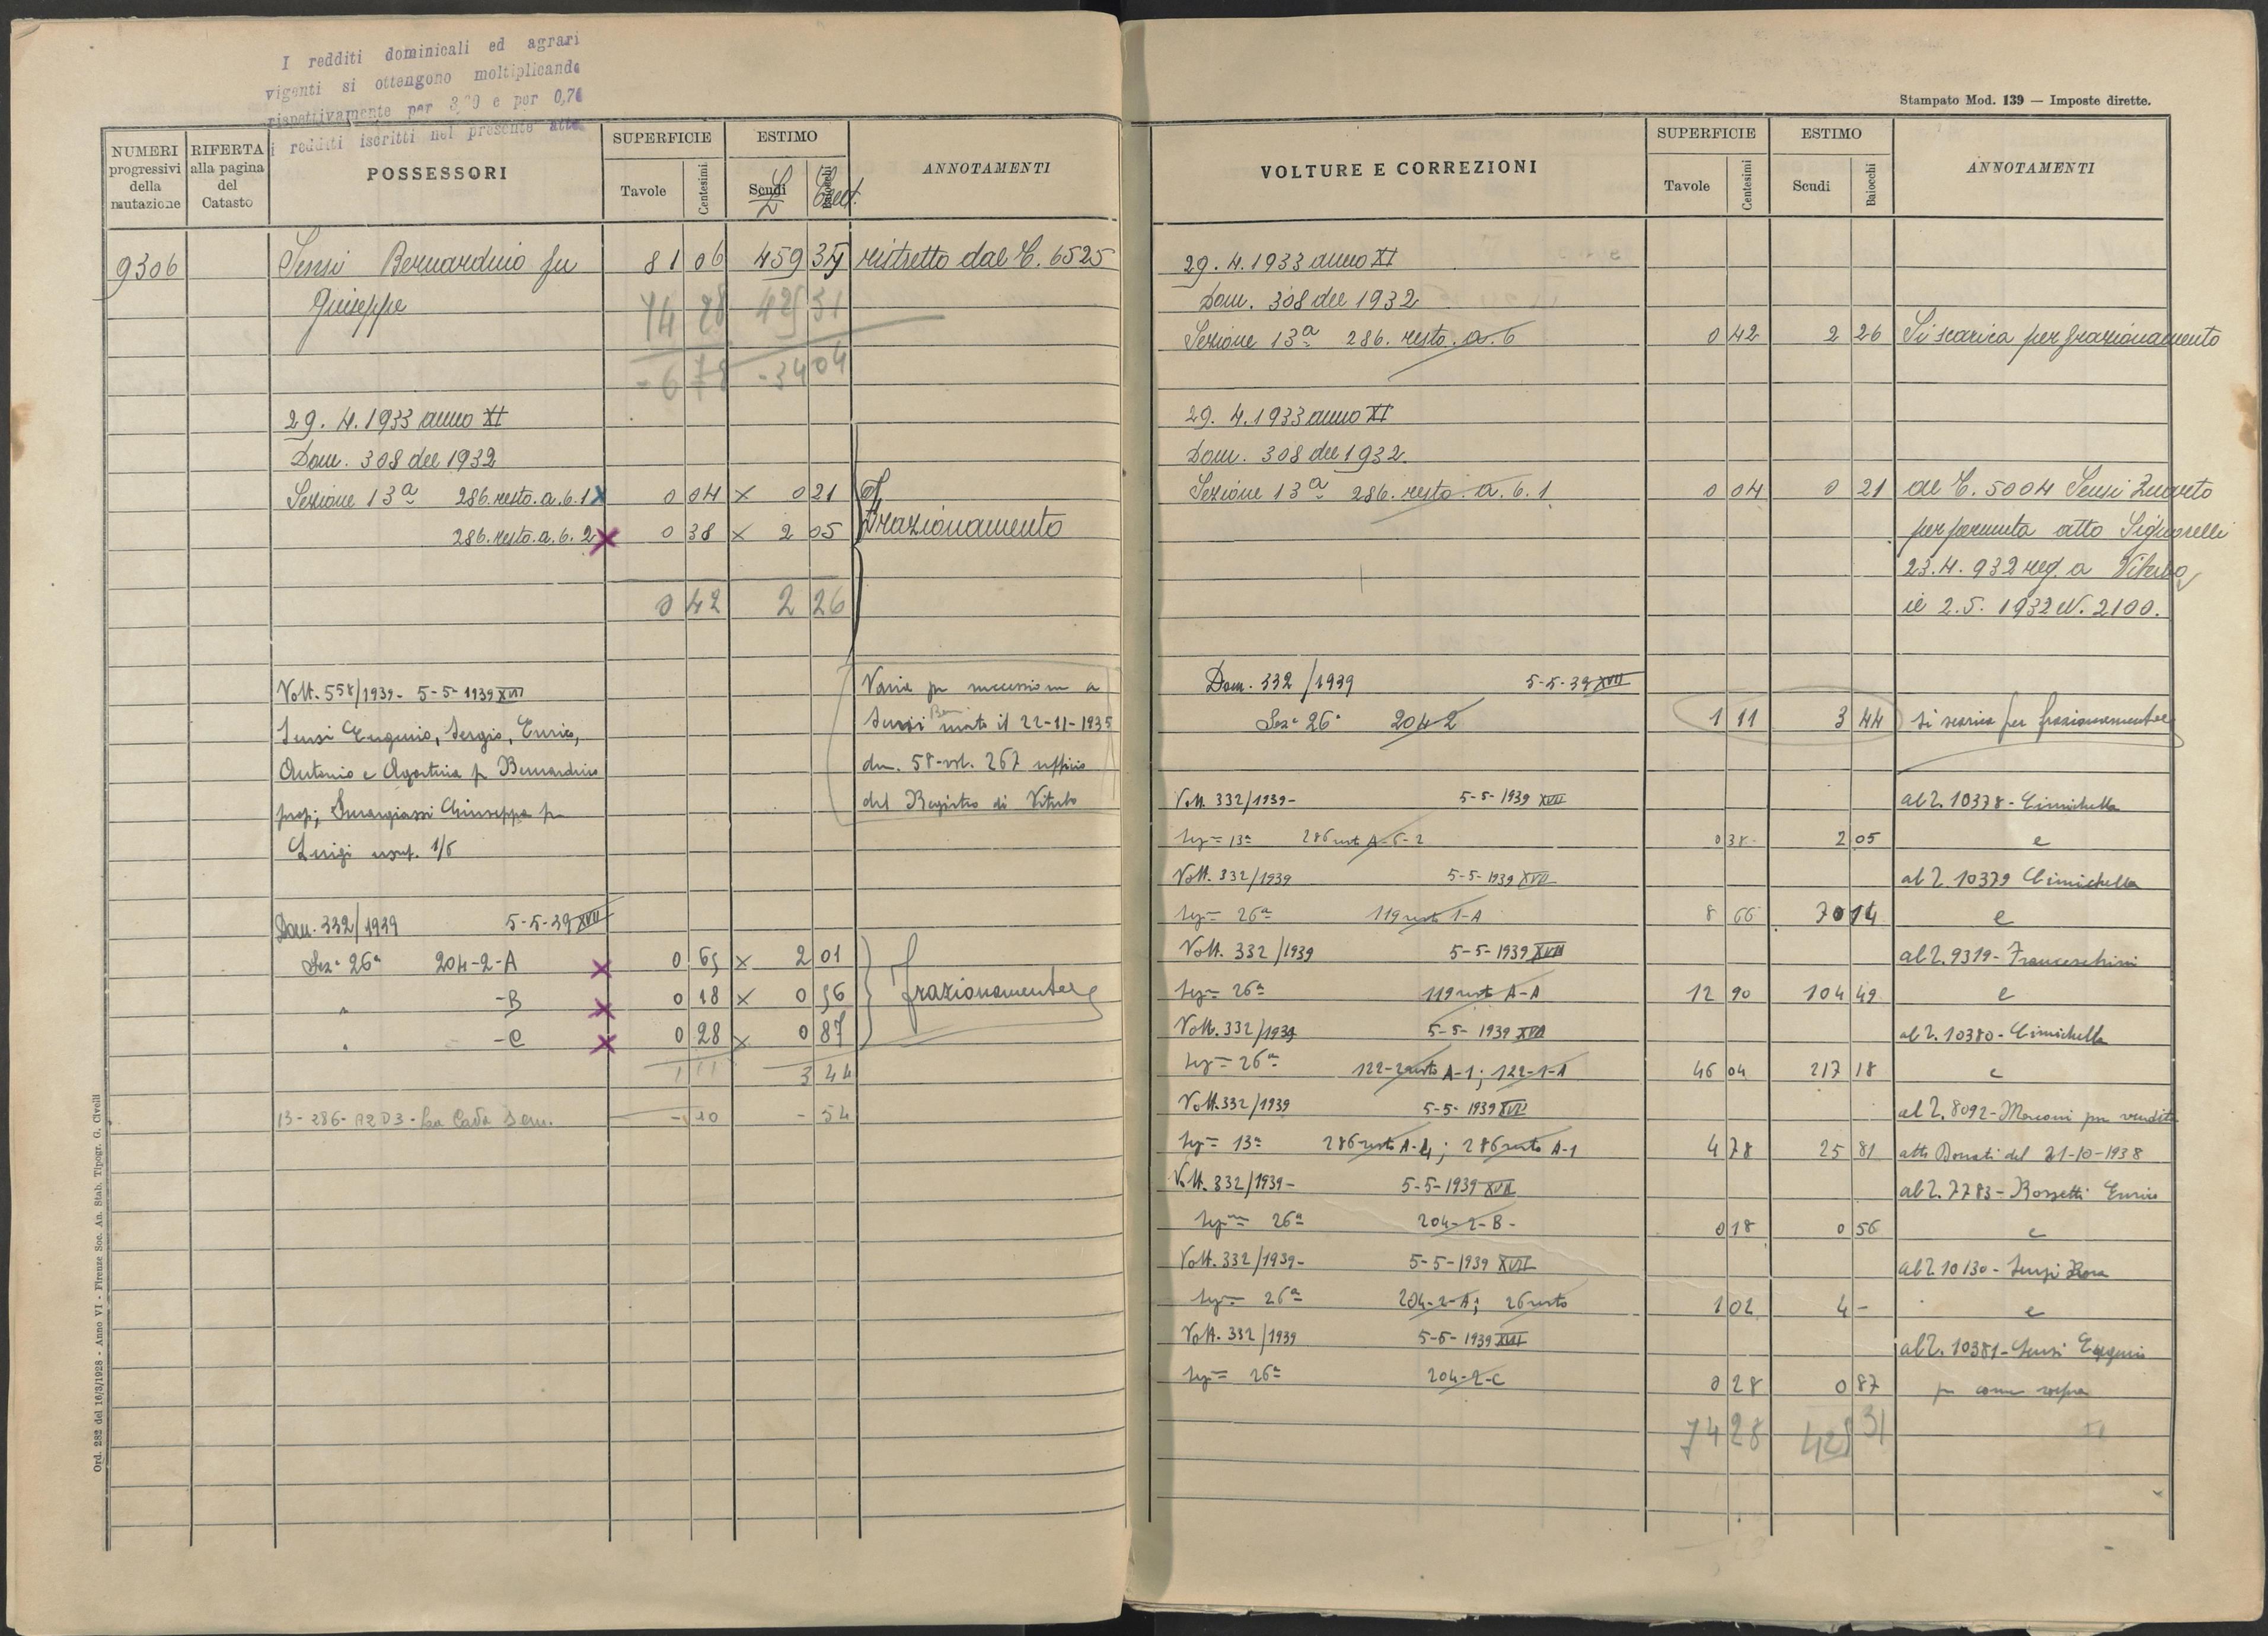 I redditi dominicali ed agrari
vigenti si ottengono moltiplicando
rispettivamente per e per 0,70
i redditi iscritti nel presente atto.
NUMERI progressivi della mutazione
RIFERTA alla pagina del Catasto
POSSESSORI
SUPERFICIE Tavole Centesimi
ESTIMO Scudi Baiocchi
ANNOTAMENTI
9306 Sensi Bernardino fu 81 06 459 35 ristretto dal C. 6525
Giuseppe 74 28 425 31
- 6 78 - 34 04
29. 4. 1933 anno XI
Dom. 308 del 1932
Sezione 13ª 286. resto. a. 6. 1 X 0 04 X 0 21
286. resto. a. 6. 2 X 0 38 X 2 05 Frazionamento
0 42 2 26
Volt. 558/1939 - 5-5-1939 XVII Varia per successione a
Sensi Eugenio, Sergio, Enrico, Sensi Ber. morto il 22-11-1935
Antonio e Agostina fu Bernardino den. 58 - vol. 267 ufficio
prop; Giuseppa fu del Registro di Viterbo
Luigi usuf. 1/6
Dom. 332/1939 5-5-39 XVII
Sez.e 26ª 204-2-A X 0 65 X 2 01
" -B X 0 18 X 0 56 frazionamento
" -C X 0 28 X 0 87
1 11 3 44
13-286- A2D3 - La Cava Sem. - 10 - 54
Ord. 282 del 16/3/1928 - Anno VI - Firenze Soc. An. Stab. Tipogr. G. Civelli
Stampato Mod. 139 — Imposte dirette.
VOLTURE E CORREZIONI
SUPERFICIE Tavole Centesimi
ESTIMO Scudi Baiocchi
ANNOTAMENTI
29. 4. 1933 anno XI
Dom. 308 del 1932
Sezione 13ª 286. resto. a. 6 0 42 2 26 Si scarica per frazionamento
29. 4. 1933 anno XI
Dom. 308 del 1932.
Sezione 13ª 286. resto. a. 6. 1 0 04 0 21 al C. 5004 Sensi Quarto
per permuta atto Signorelli
23. 4. 932 reg. a Viterbo
il 2. 5. 1932 N. 2100.
Dom. 332/1939 5-5-39 XVII
Sez.e 26ª 204-2 1 11 3 44 si scarica per frazionamento
Volt. 332/1939- 5-5-1939 XVII al C. 10378 - Cimichella
Sez= 13ª 286 resto A-6-2 0 38 2 05 e
Volt. 332/1939 5-5-1939 XVII al C. 10379 Cimichella
Sez= 26ª 119 resto 1-A 8 66 70 14 e
Volt. 332/1939 5-5-1939 XVII al C. 9319 - Franceschini
Sez= 26ª 119 resto A-A 12 90 104 49 e
Volt. 332/1939 5-5-1939 XVII al C. 10380 - Cimichella
Sez= 26ª 122-2 resto A-1; 122-1-A 46 04 217 18 e
Volt. 332/1939 5-5-1939 XVII al C. 8092 - Marconi per vendita
Sez= 13ª 286 resto A-4; 286 resto A-1 4 78 25 81 atto Donati del 21-10-1938
Volt. 332/1939- 5-5-1939 XVII al C. 7783 - Rossetti Enrico
Sez= 26ª 204-2-B- 0 18 0 56 e
Volt. 332/1939- 5-5-1939 XVII al C. 10130 - Sensi Rosa
Sez= 26ª 204-2-A; 26 resto 1 02 4 - e
Volt. 332/1939 5-5-1939 XVII al C. 10381 - Sensi Eugenio
Sez= 26ª 204-2-C 0 28 0 87 per come sopra
74 28 425 31